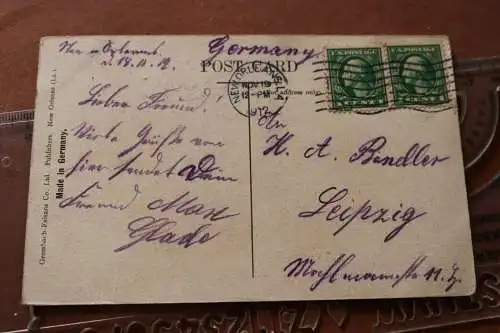 New Orleans
d. 18.11.12
Germany
POST CARD
address only
NEW ORLEANS, LA.
NOV 19
12 - PM
1912
U.S. POSTAGE
U.S. POSTAGE
1 CENT 1
1 CENT 1
Lieber Freund!
Viele Grüße von
hier sendet Dein
Freund Max
Glade
An
H. A. Bendler
Leipzig
Made in Germany.
Grombach-Faisans Co. Ltd. Publishers. New Orleans (La.).